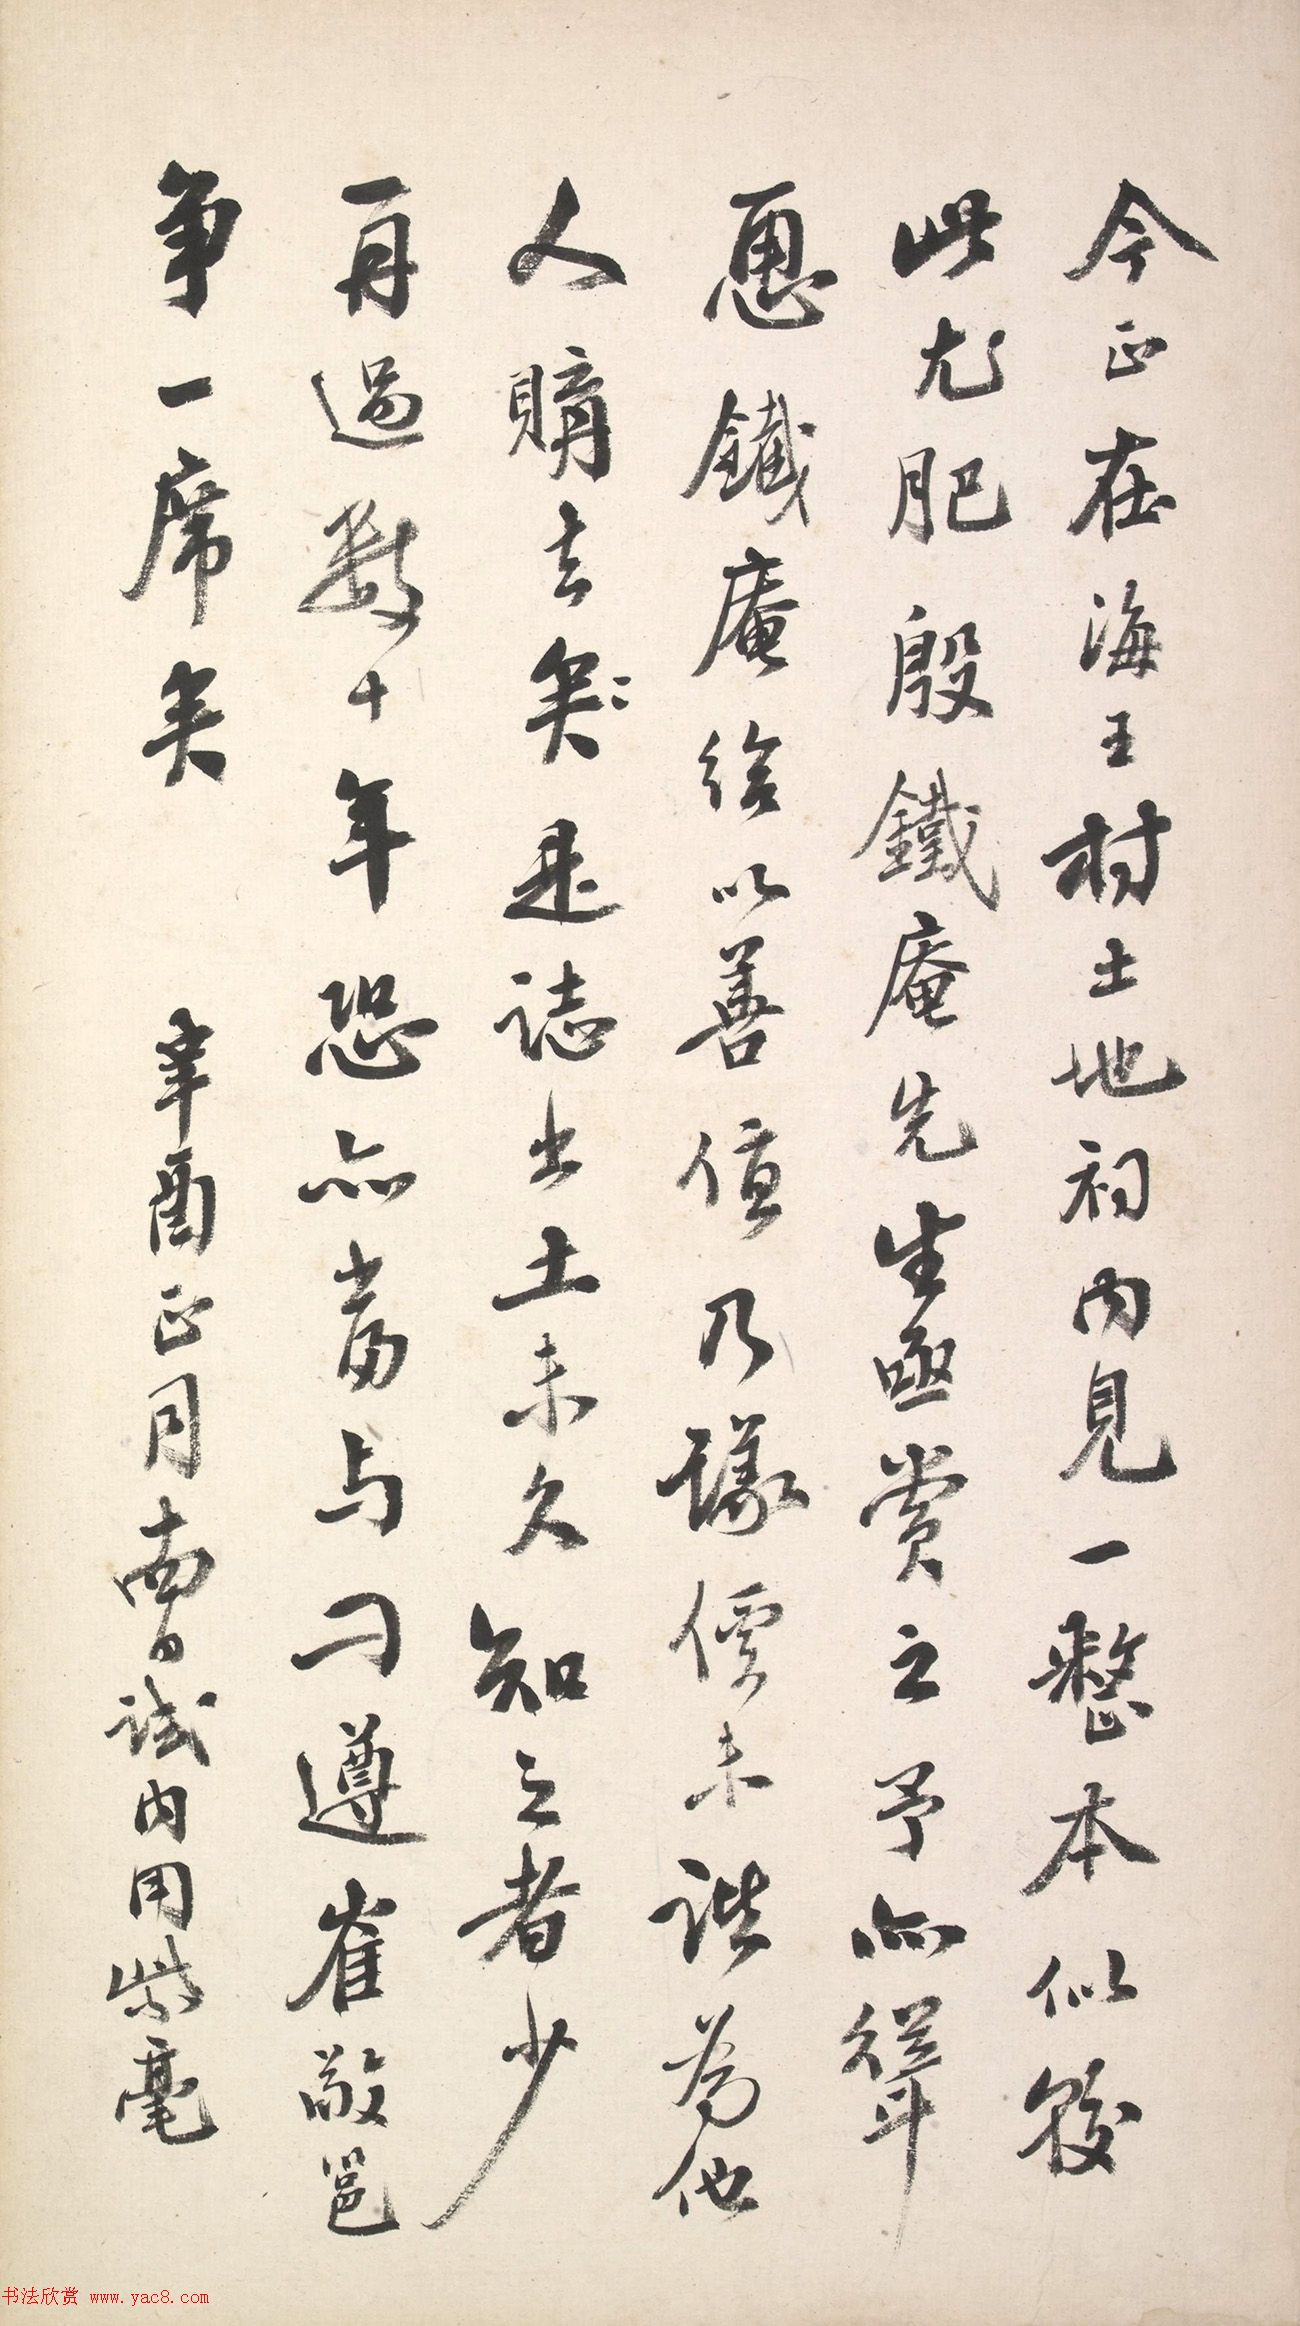 今正在海王村土地祠内見一整本似較
此尤肥殷鐵庵先生亟賞之予亦聳
恿鐵庵給以善值乃議價未諧為他
人購去矣是誌出土未久知之者少
再過數十年恐亦當与刁遵崔敬邕
争一席矣 辛酉正月 曹 内用紫毫
书法欣赏 www.yac8.com